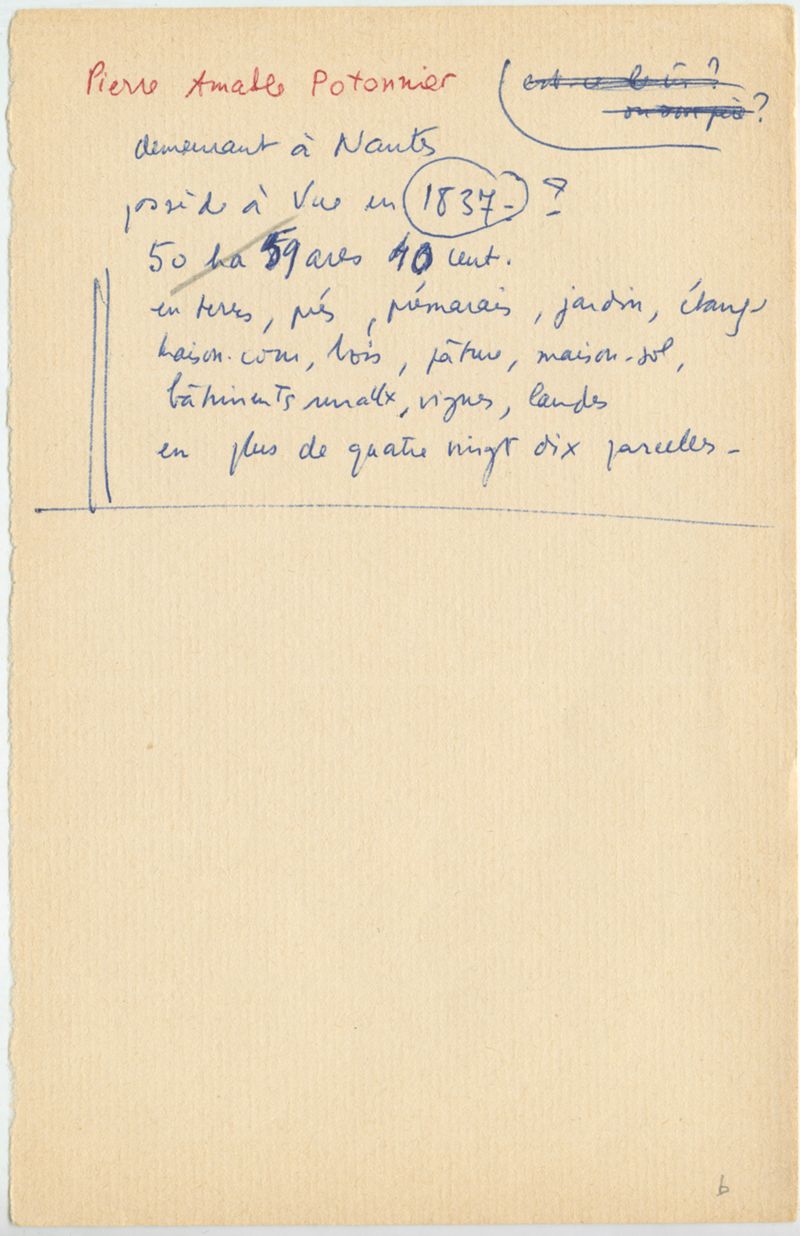 Pierre Amable Potonnier
est-ce le fils ?
ou son père ?
demeurant à Nantes
possède à Vue en 1837- ?
50 ha 59 ares 40 cent.
en terres, prés, prémarais, jardin, étang,
maison-cour, bois, pâture, maison-sol,
bâtiments ruraux, vignes, landes
en plus de quatre vingt dix parcelles -
6